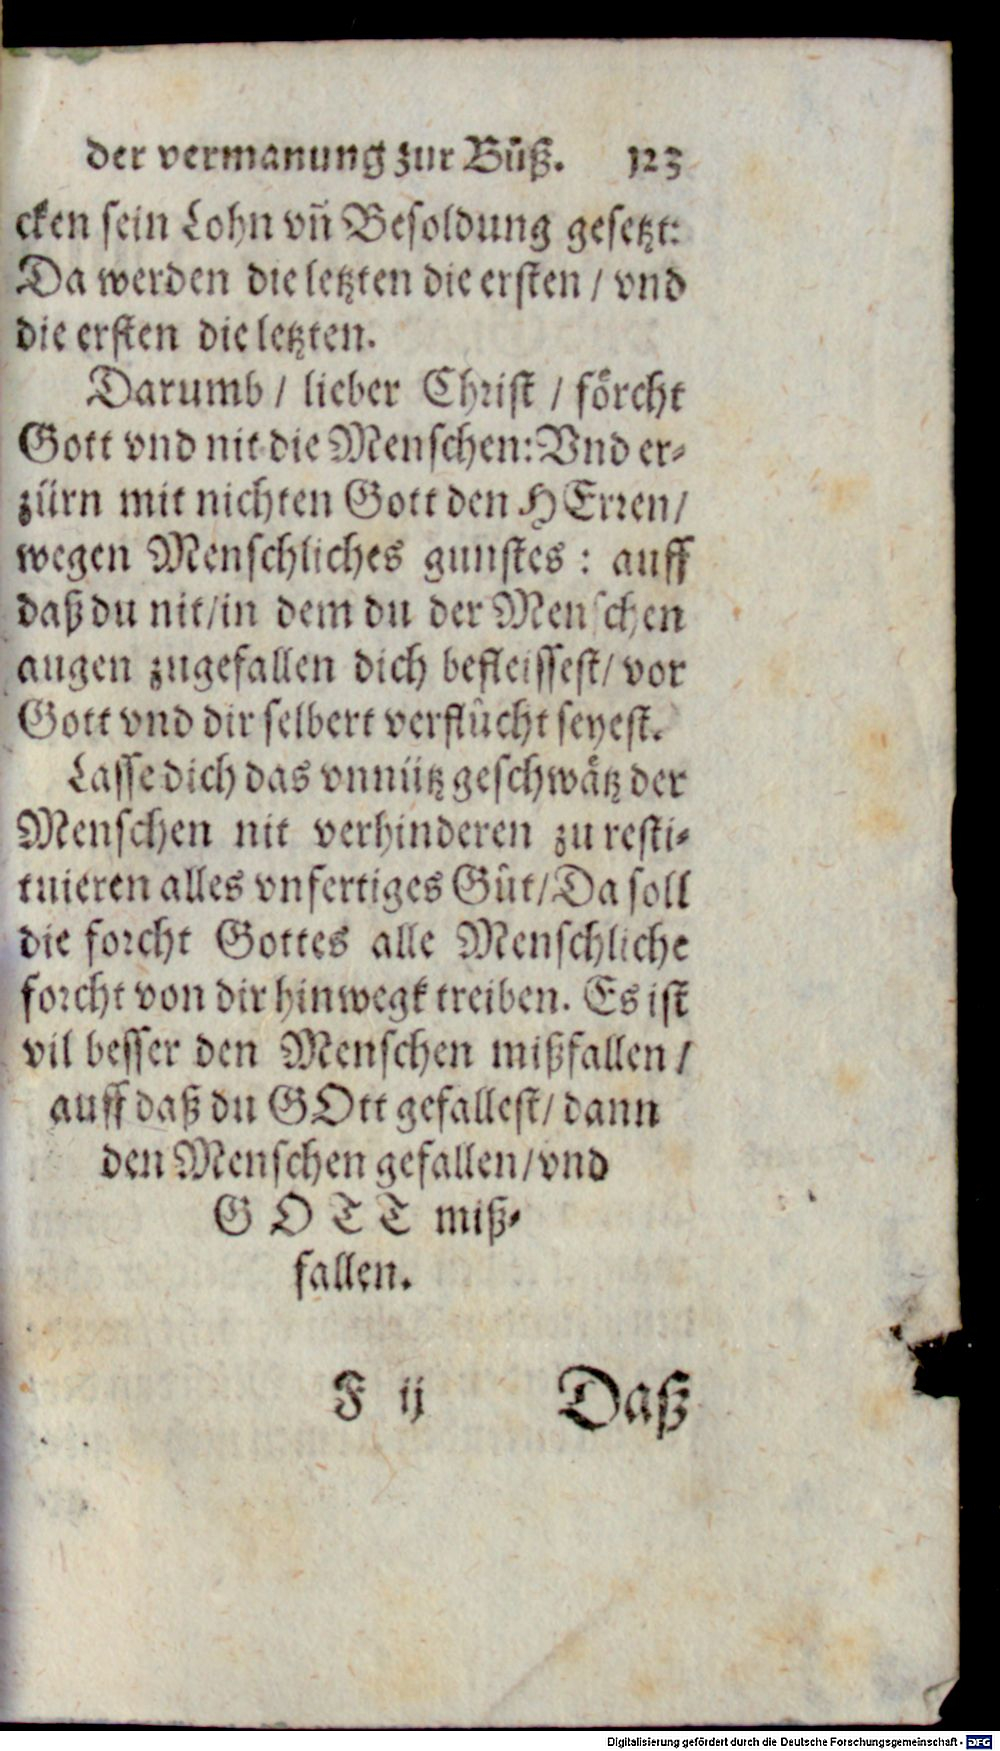 der vermanung zur Bůß. 123
cken sein Lohn vn̄ Besoldung gesetzt:
Da werden die letzten die ersten / vnd
die ersten die letzten.
Darumb / lieber Christ / förcht
Gott vnd nit die Menschen: Vnd er-
zürn mit nichten Gott den HErren /
wegen Menschliches gunstes : auff
daß du nit / in dem du der Menschen
augen zugefallen dich befleissest / vor
Gott vnd dir selbert verflůcht seyest.
Lasse dich das vnnütz geschwätz der
Menschen nit verhinderen zu resti-
tuieren alles vnfertiges Gůt / Da soll
die forcht Gottes alle Menschliche
forcht von dir hinwegk treiben. Es ist
vil besser den Menschen mißfallen /
auff daß du GOtt gefallest / dann
den Menschen gefallen / vnd
GOTT miß-
fallen.
F ij Daß
Digitalisierung gefördert durch die Deutsche Forschungsgemeinschaft - DFG